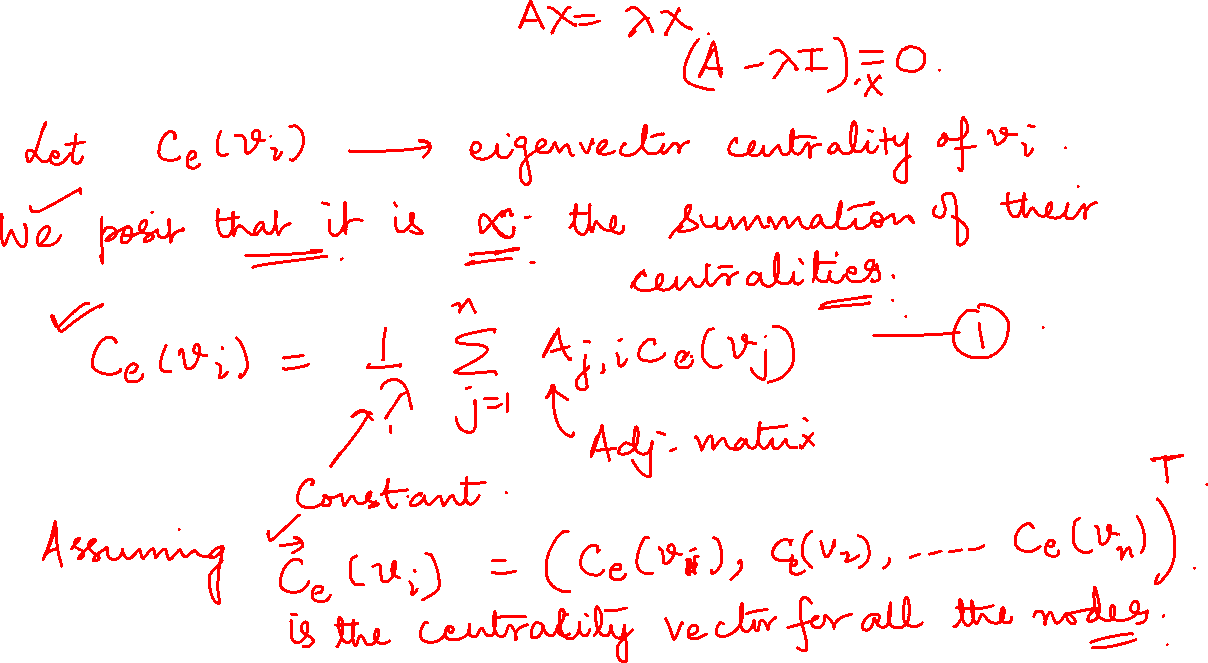 AX = λx.
(A - λI)x = 0.
Let Ce(vi) → eigenvector centrality of vi.
We posit that it is ∝ the summation of their
centralities.
Ce(vi) = 1/λ Σ_{j=1}^{n} Aj,i Ce(vj) — ①
Adj. matrix
Constant.
Assuming C⃗e(vi) = (Ce(vi), Ce(v2), ---- Ce(vn))^T.
is the centrality vector for all the nodes.